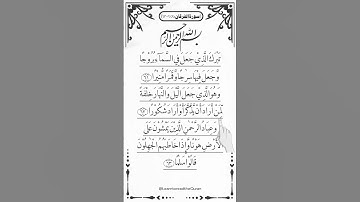 سورة الفرقان
بسم الله الرحمن الرحيم
تَبَٰرَكَ ٱلَّذِى جَعَلَ فِى ٱلسَّمَآءِ بُرُوجًا
وَجَعَلَ فِيهَا سِرَٰجًا وَقَمَرًا مُّنِيرًا
وَهُوَ ٱلَّذِى جَعَلَ ٱلَّيْلَ وَٱلنَّهَارَ خِلْفَةً
لِّمَنْ أَرَادَ أَن يَذَّكَّرَ أَوْ أَرَادَ شُكُورًا
وَعِبَادُ ٱلرَّحْمَٰنِ ٱلَّذِينَ يَمْشُونَ عَلَى
ٱلْأَرْضِ هَوْنًا وَإِذَا خَاطَبَهُمُ ٱلْجَٰهِلُونَ
قَالُوا۟ سَلَٰمًا